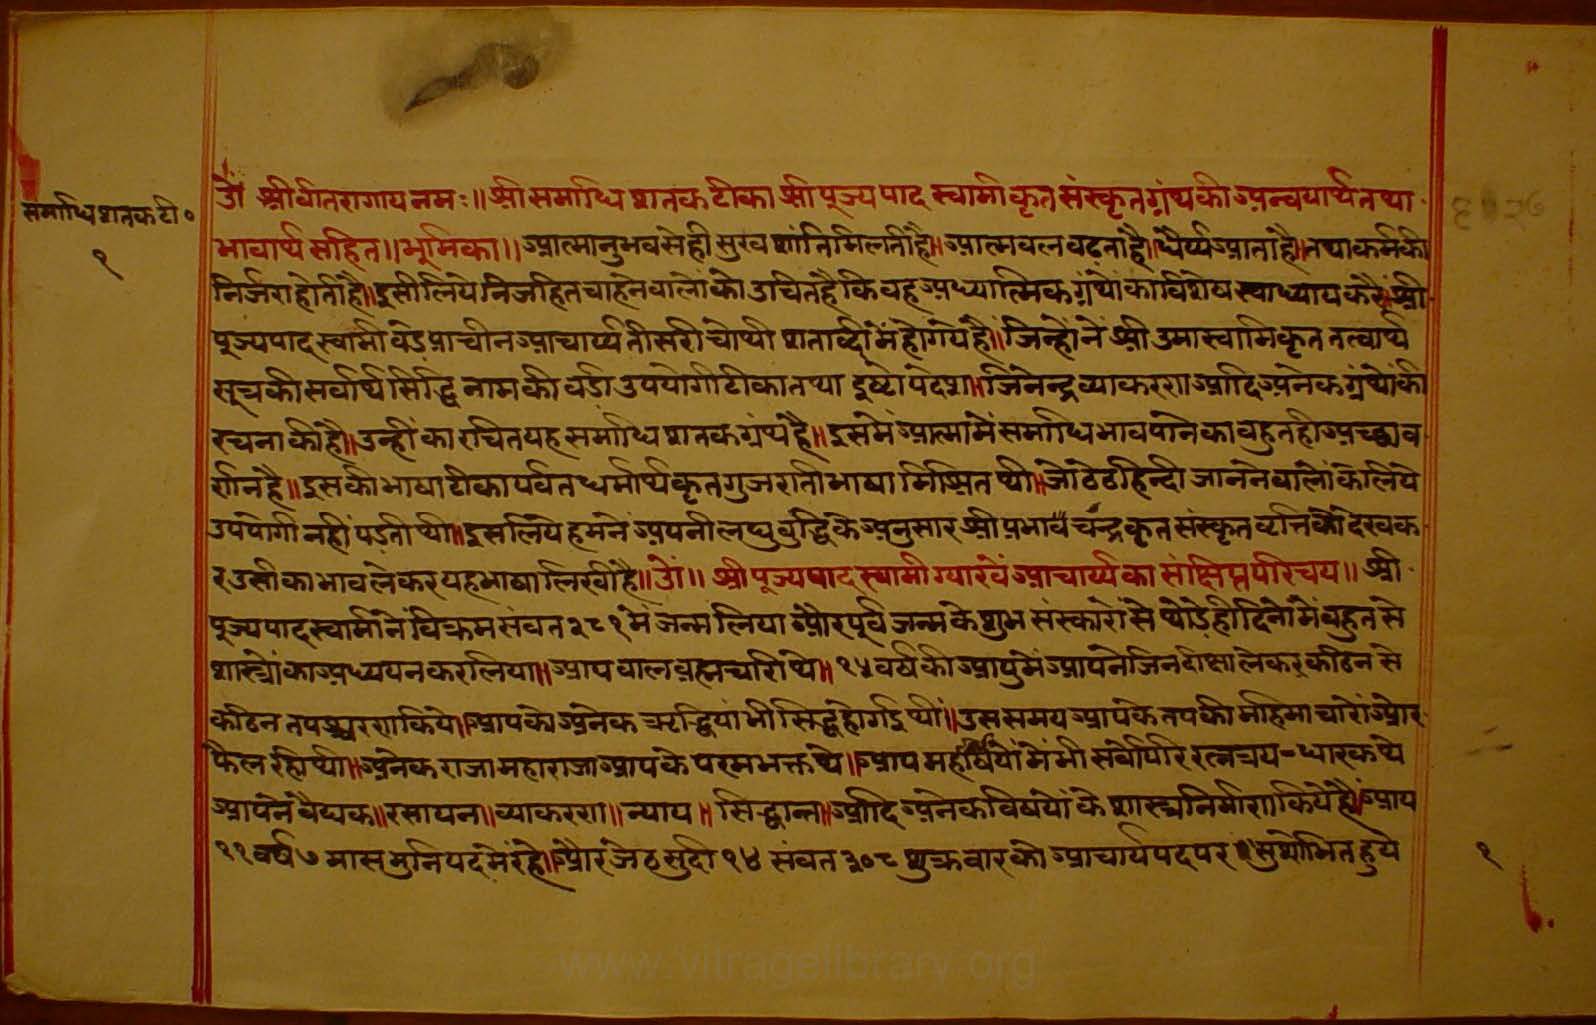 समाधि शतक टी०
१
ॐ श्रीवीतरागाय नमः ॥ श्री समाधि शतक टीका श्री पूज्यपाद स्वामी कृत संस्कृत ग्रंथ की अन्वयार्थ तथा
भावार्थ सहित ॥ भूमिका ॥ आत्मानुभव से ही सुख शांति मिलती है ॥ आत्मवल बढ़ता है ॥ धैर्य्य आता है ॥ तथा कर्म की
निर्जरा होती है ॥ इसीलिये निजहित चाहने वालों को उचित है कि वह अध्यात्मिक ग्रंथों का विशेष स्वाध्याय करैं ॥ श्री
पूज्यपाद स्वामी वडे प्राचीन आचार्य्य तीसरी चोथी शताब्दी में हो गये हैं ॥ जिन्हों नें श्री उमास्वामि कृत तत्वार्थ
सूत्र की सर्वार्थ सिद्धि नाम की वडी उपयोगी टीका तथा इष्टोपदेश ॥ जिनेन्द्र व्याकरण आदि अनेक ग्रंथों की
रचना की है ॥ उन्हीं का रचित यह समाधि शतक ग्रंथ है ॥ इसमें आत्मा में समाधि भाव पाने का वहुत ही अच्छा व
र्णन है ॥ इसकी भाषा टीका पर्वत धर्मार्थ कृत गुजराती भाषा मिश्रित थी ॥ जो ठेठ हिन्दी जानने वालों के लिये
उपयोगी नहीं पडती थी ॥ इसलिये हमनें अपनी लघु वुद्धि के अनुसार श्री प्रभाव चन्द्र कृत संस्कृत वृत्ति को देखक
र उसी का भाव लेकर यह भाषा लिखी है ॥ ॐ ॥ श्री पूज्यपाद स्वामी ग्यारवें आचार्य्य का संक्षिप्त परिचय ॥ श्री
पूज्यपाद स्वामी नें विक्रम संवत २८१ में जन्म लिया और पूर्व जन्म के शुभ संस्कारों सै थोडे ही दिनों में वहुत से
शास्त्रों का अध्ययन कर लिया ॥ आप वाल व्रह्मचारी थे ॥ १५ वर्ष की आयु में आपने जिन दीक्षा लेकर कठिन से
कठिन तपश्चरण किये ॥ आपको अनेक ऋद्धियां भी सिद्ध हो गई थीं ॥ उस समय आपके तप की महिमा चारों ओर
फैल रही थी ॥ अनेक राजा महाराजा आपके परम भक्त थे ॥ आप महर्षियों में भी सर्वोपरि रत्नत्रय = धारक थे
आपने वैद्यक ॥ रसायन ॥ व्याकरण ॥ न्याय ॥ सिद्धान्त ॥ आदि अनेक विषयों के शास्त्र निर्माण किये हैं ॥ आप
११ वर्ष ७ मास मुनि पद में रहे ॥ और जेठ सुदी १४ संवत ३०८ शुक्रवार को आचार्य पद पर सुशोभित हुये
१
www.vitragelibrary.org